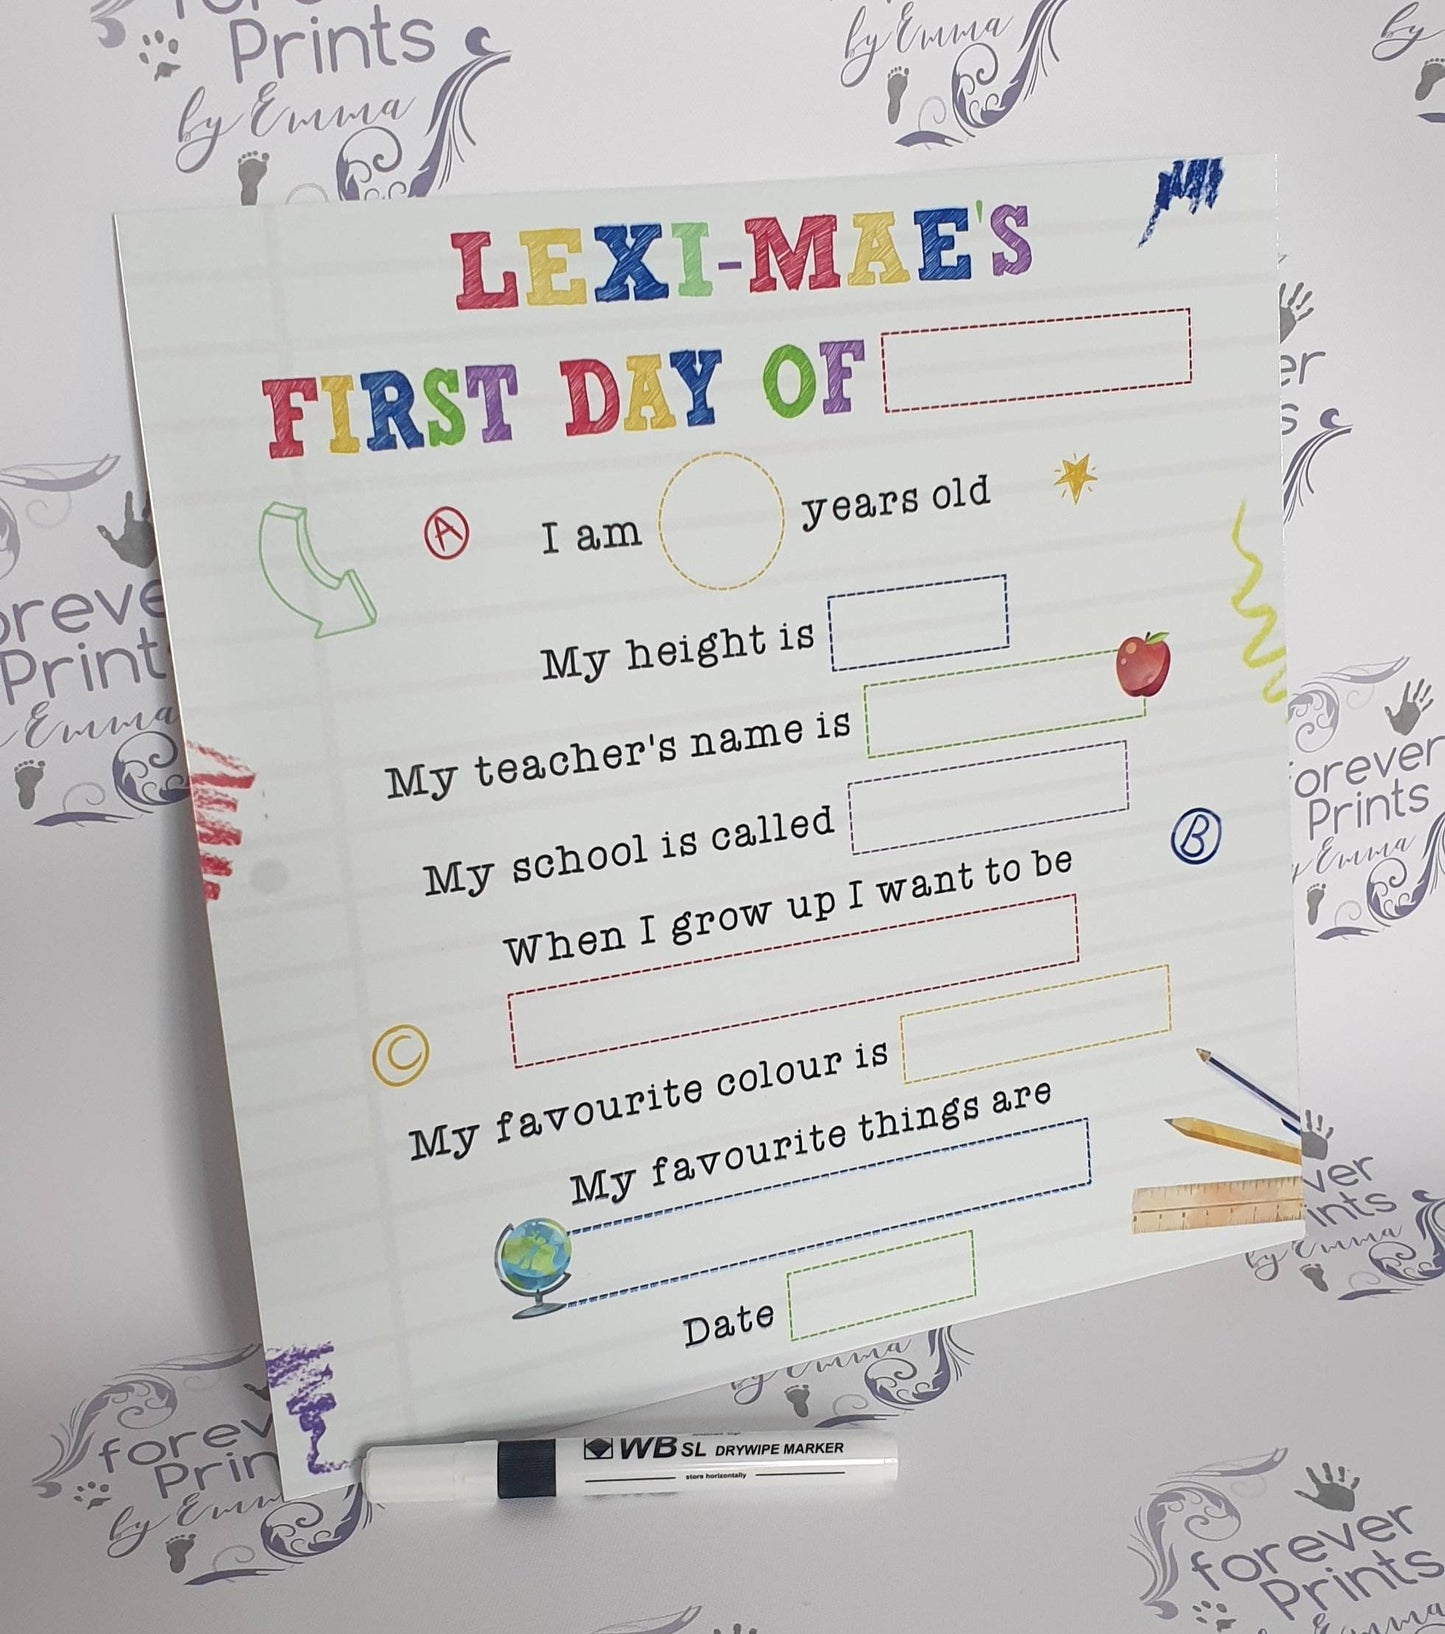 Prints
by Emma
by Emma
by
LEXI-MAE'S
FIRST DAY OF
A
I am years old
My height is
My teacher's name is
My school is called
B
When I grow up I want to be
C
My favourite colour is
My favourite things are
Date
WB SL DRYWIPE MARKER
store horizontally
Prints
Emma
orever
Prints
Emma
forever
Prints
by Emma